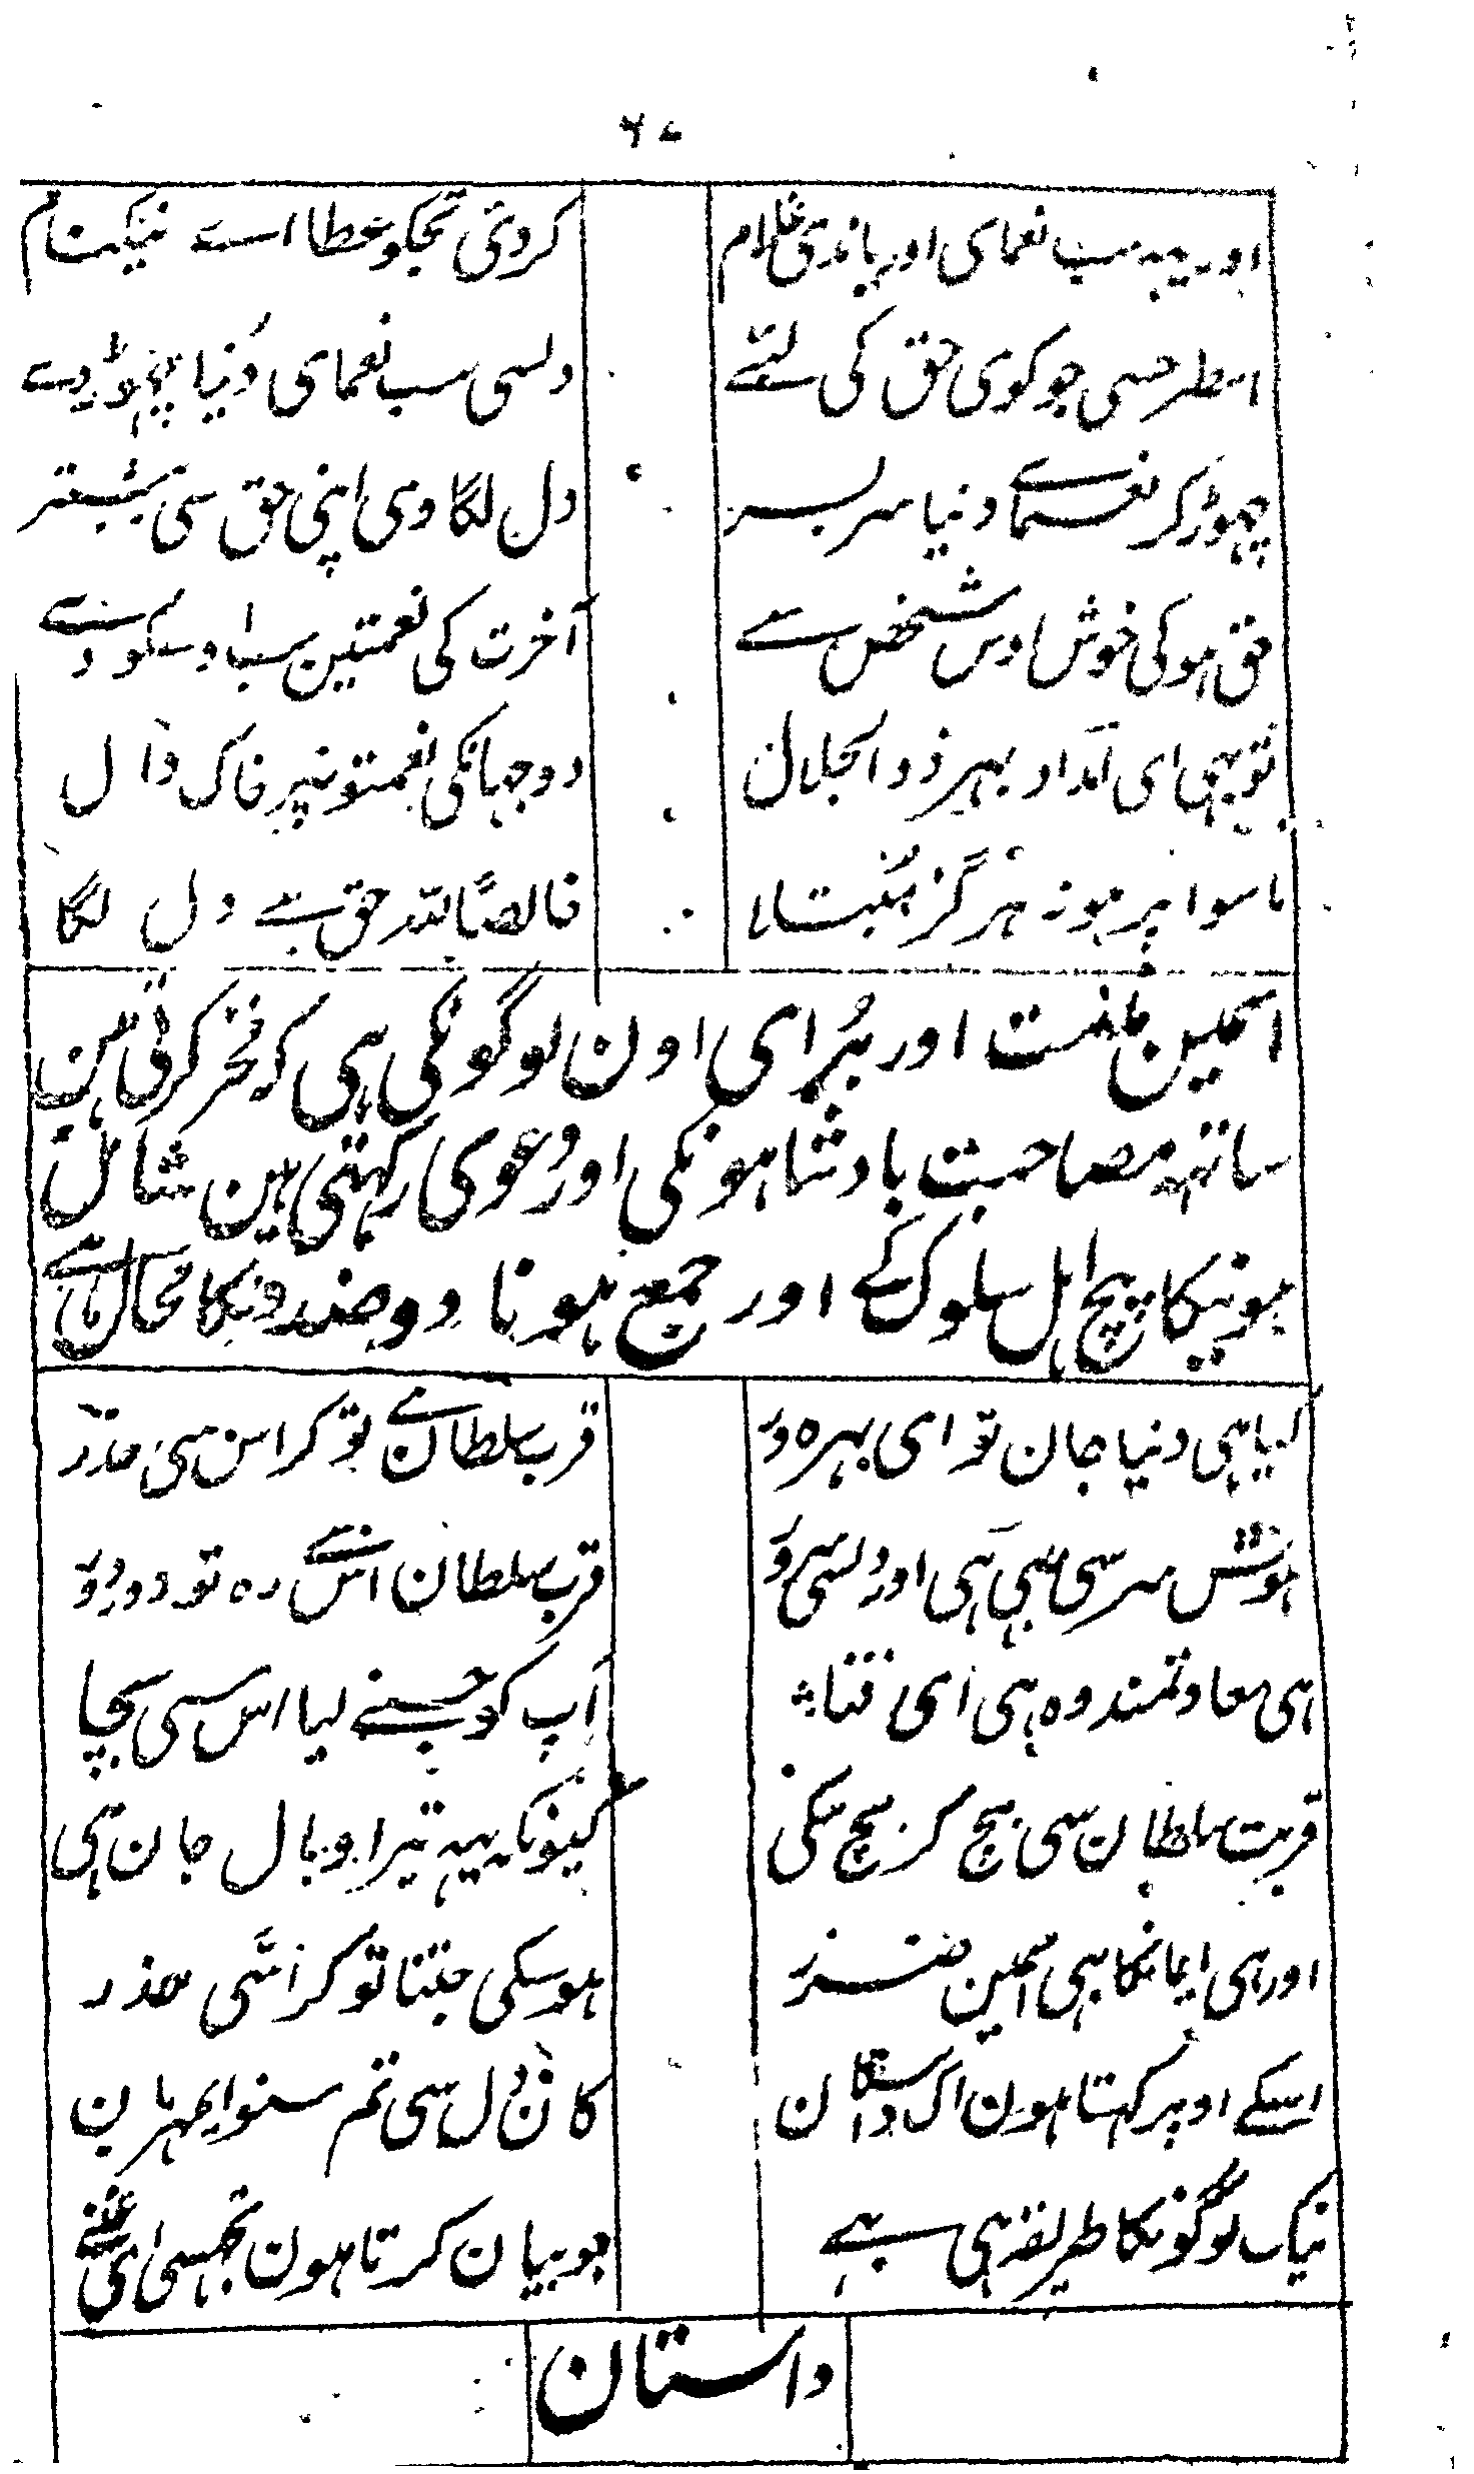 ۶۷
اور یہہ سب نعمای اور باندی غلام
کردئی تجکو عطا اے نیکنام
اسطرحسی جو کوی حق کی لئے
دلسی سب نعمای دُنیا چھوڑدے
چھوڑکر نعماے دنیا سربسر
دل لگاوی اپنی حق سی بیشتر
حق ہو کی خوش اوس شخص سے
آخرت کی نعمتین سب اوسکو دے
تو بھی ای امداد بہر ذوالجلال
دوجہانکی نعمتونپر خاک ڈال
ماسوا پر ہو نہ ہرگز مُبتلا
خالصًا للہ حق سے دل لگا
اسمین مذمت اور بُرای اون لوگونکی ہی کہ فخر کرتی ہین
ساتہہ مصاحبت بادشاہونکی اور دعوی رکہتی ہین شامل
ہونیکا بیچ اہل سلوک کے اور جمع ہونا دو ضدونکا محال ہے
کیا ہی دنیا جان تو ای بہرہ ور
قرب سلطان ہے تو کر اس سی حذر
ہوش سر سی بھی ہی اور دلسی
قرب سلطان اس سے رہ تو دور
ہی سعادتمند وہ ہی ای فتا
آپ کو جسنے لیا اس سی بچا
قربت سلطان سی بچ کر بچ سکی
کیونکہ یہہ تیرا وبال جان ہی
اور ہی ایمانکا بہی اسمین ضرر
ہوسکی جتنا تو کر اسّی حذر
اسکے اوپر کہتا ہون اک داستان
کان دل سی تم سنو ایمہربان
نیک لوگونکا طریقہ ہی یہے
جو بیان کرتا ہون تجہسی ای
داستان